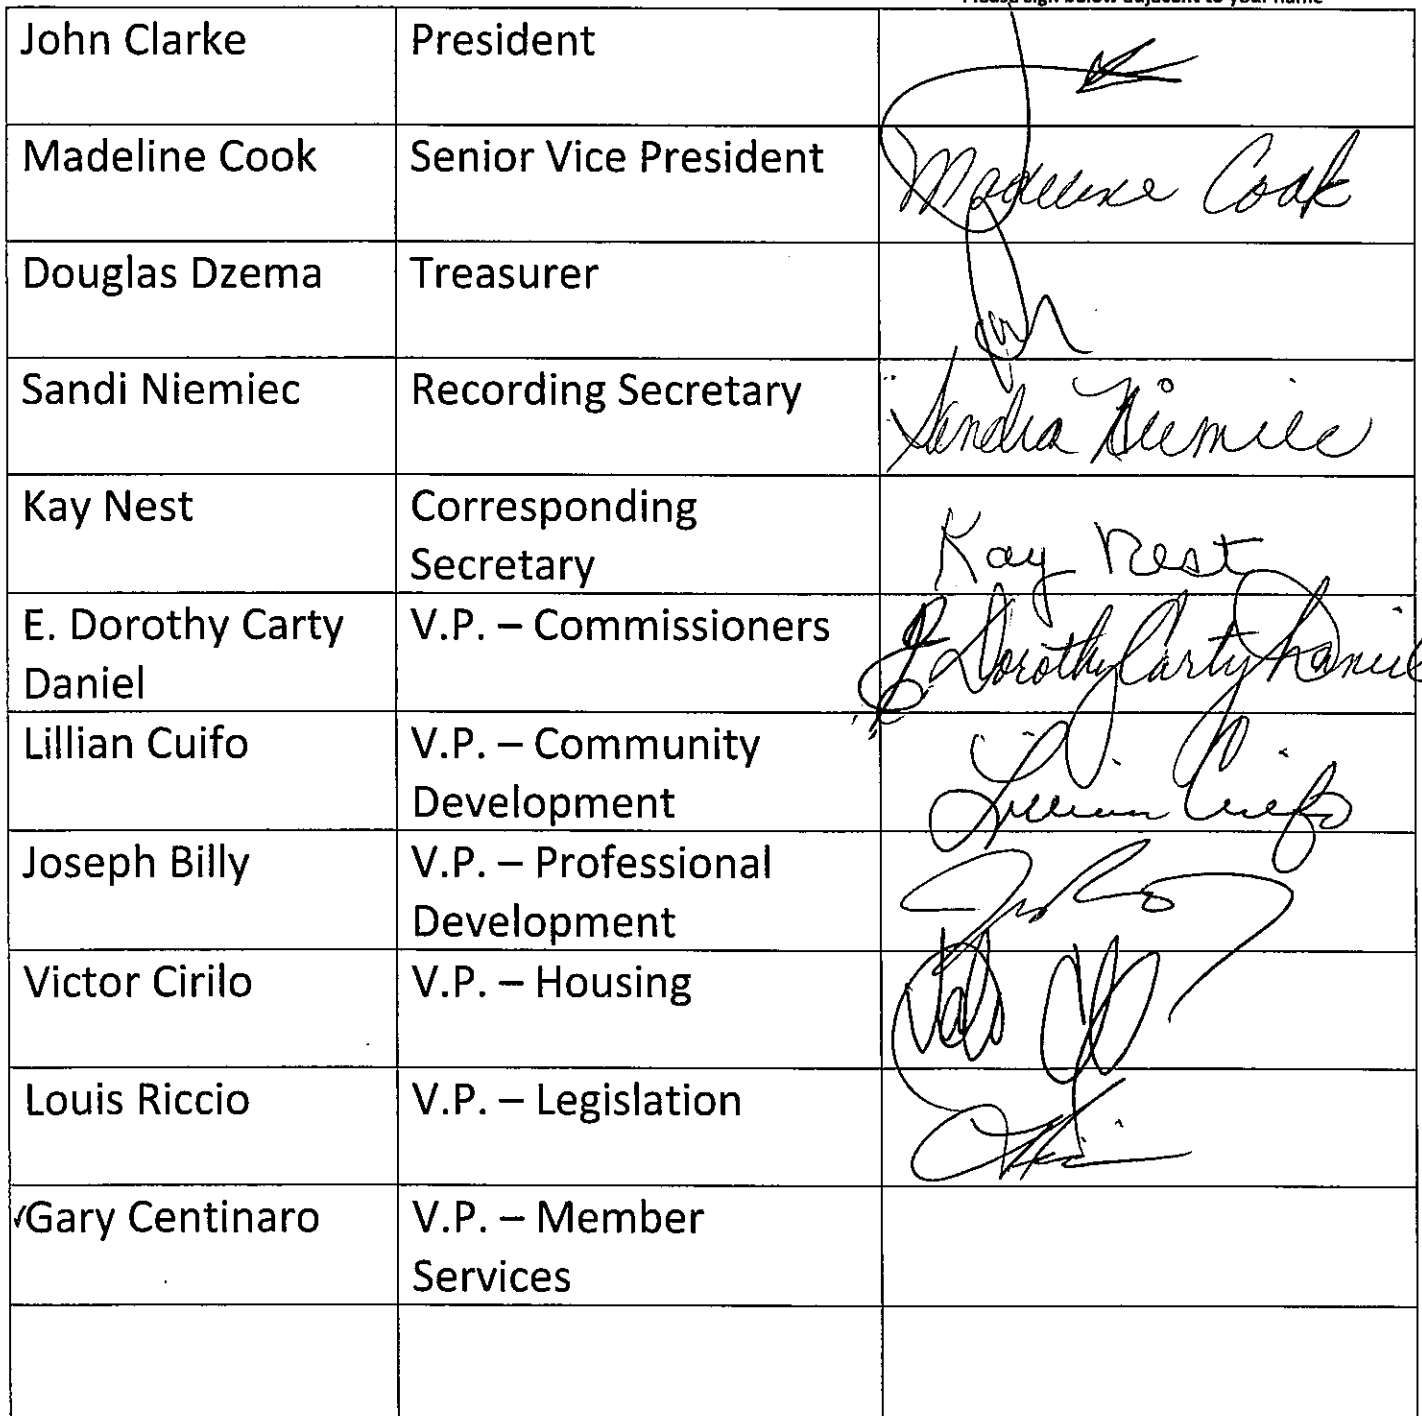 Please sign below adjacent to your name
John Clarke President
Madeline Cook Senior Vice President Madeline Cook
Douglas Dzema Treasurer
Sandi Niemiec Recording Secretary Sandra Niemiec
Kay Nest Corresponding Kay Nest
Secretary
E. Dorothy Carty V.P. – Commissioners E Dorothy Carty Daniel
Daniel
Lillian Cuifo V.P. – Community Lillian Cuifo
Development
Joseph Billy V.P. – Professional
Development
Victor Cirilo V.P. – Housing
Louis Riccio V.P. – Legislation
✓Gary Centinaro V.P. – Member
Services